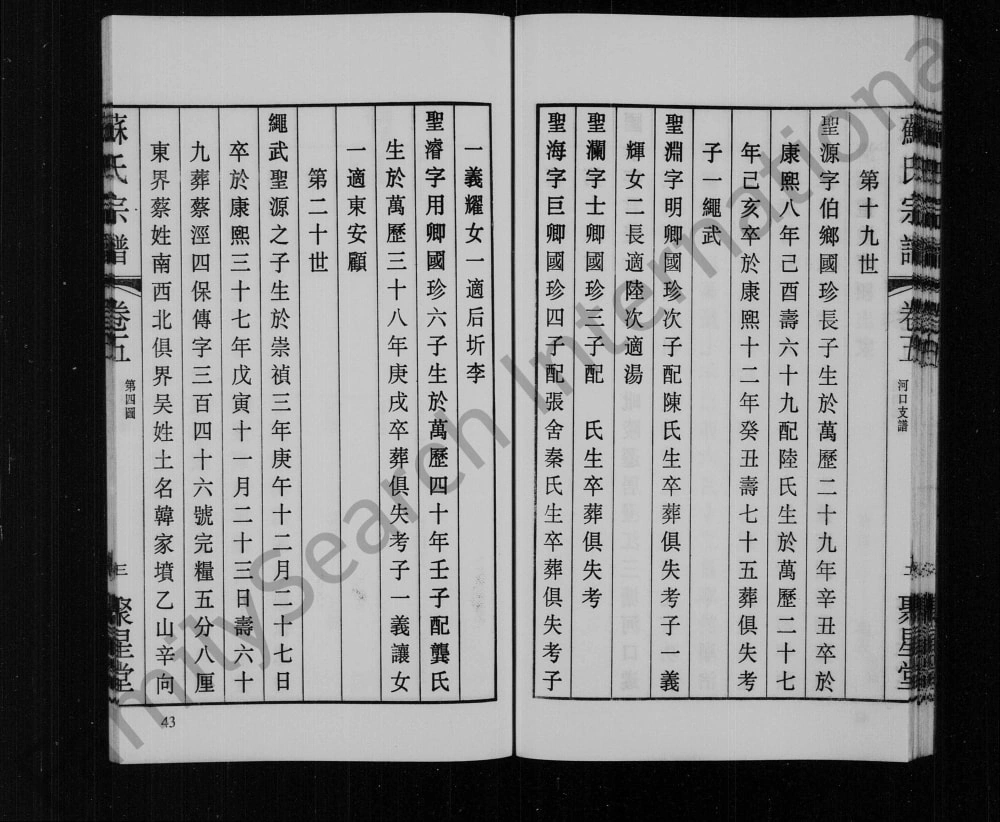 蘇氏宗譜 卷五 河口支譜 二 聚星堂
第十九世
聖源字伯鄉國珍長子生於萬歷二十九年辛丑卒於
康熙八年己酉壽六十九配陸氏生於萬歷二十七
年己亥卒於康熙十二年癸丑壽七十五葬俱失考
子一繩武
聖淵字明卿國珍次子配陳氏生卒葬俱失考子一義
輝女二長適陸次適湯
聖瀾字士卿國珍三子配 氏生卒葬俱失考
聖海字巨卿國珍四子配張舍秦氏生卒葬俱失考子
一義耀女一適后圻李
聖濬字用卿國珍六子生於萬歷四十年壬子配龔氏
生於萬歷三十八年庚戌卒葬俱失考子一義讓女
一適東安顧
第二十世
繩武聖源之子生於崇禎三年庚午十二月二十七日
卒於康熙三十七年戊寅十一月二十三日壽六十
九葬蔡涇四保傳字三百四十六號完糧五分八厘
東界蔡姓南西北俱界吳姓土名韓家墳乙山辛向
蘇氏宗譜 卷五 第四圖 三 聚星堂
43
FamilySearch International